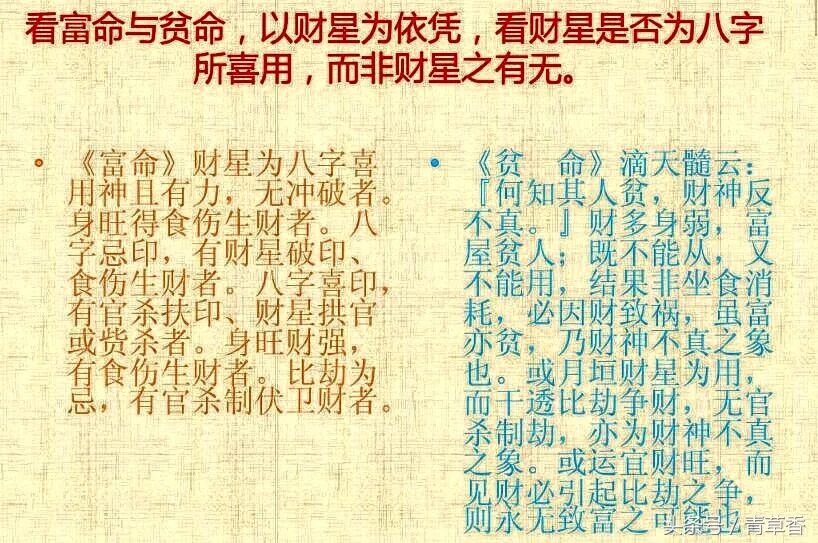 看富命与贫命，以财星为依凭，看财星是否为八字
所喜用，而非财星之有无。
• 《富命》财星为八字喜
用神且有力，无冲破者。
身旺得食伤生财者。八
字忌印，有财星破印、
食伤生财者。八字喜印，
有官杀扶印、财星拱官
或赀杀者。身旺财强，
有食伤生财者。比劫为
忌，有官杀制伏卫财者。
• 《贫 命》滴天髓云：
『何知其人贫，财神反
不真。』财多身弱，富
屋贫人；既不能从，又
不能用，结果非坐食消
耗，必因财致祸，虽富
亦贫，乃财神不真之象
也。或月垣财星为用，
而干透比劫争财，无官
杀制劫，亦为财神不真
之象。或运宜财旺，而
见财必引起比劫之争，
则永无致富之可能也
头条号 / 青草香